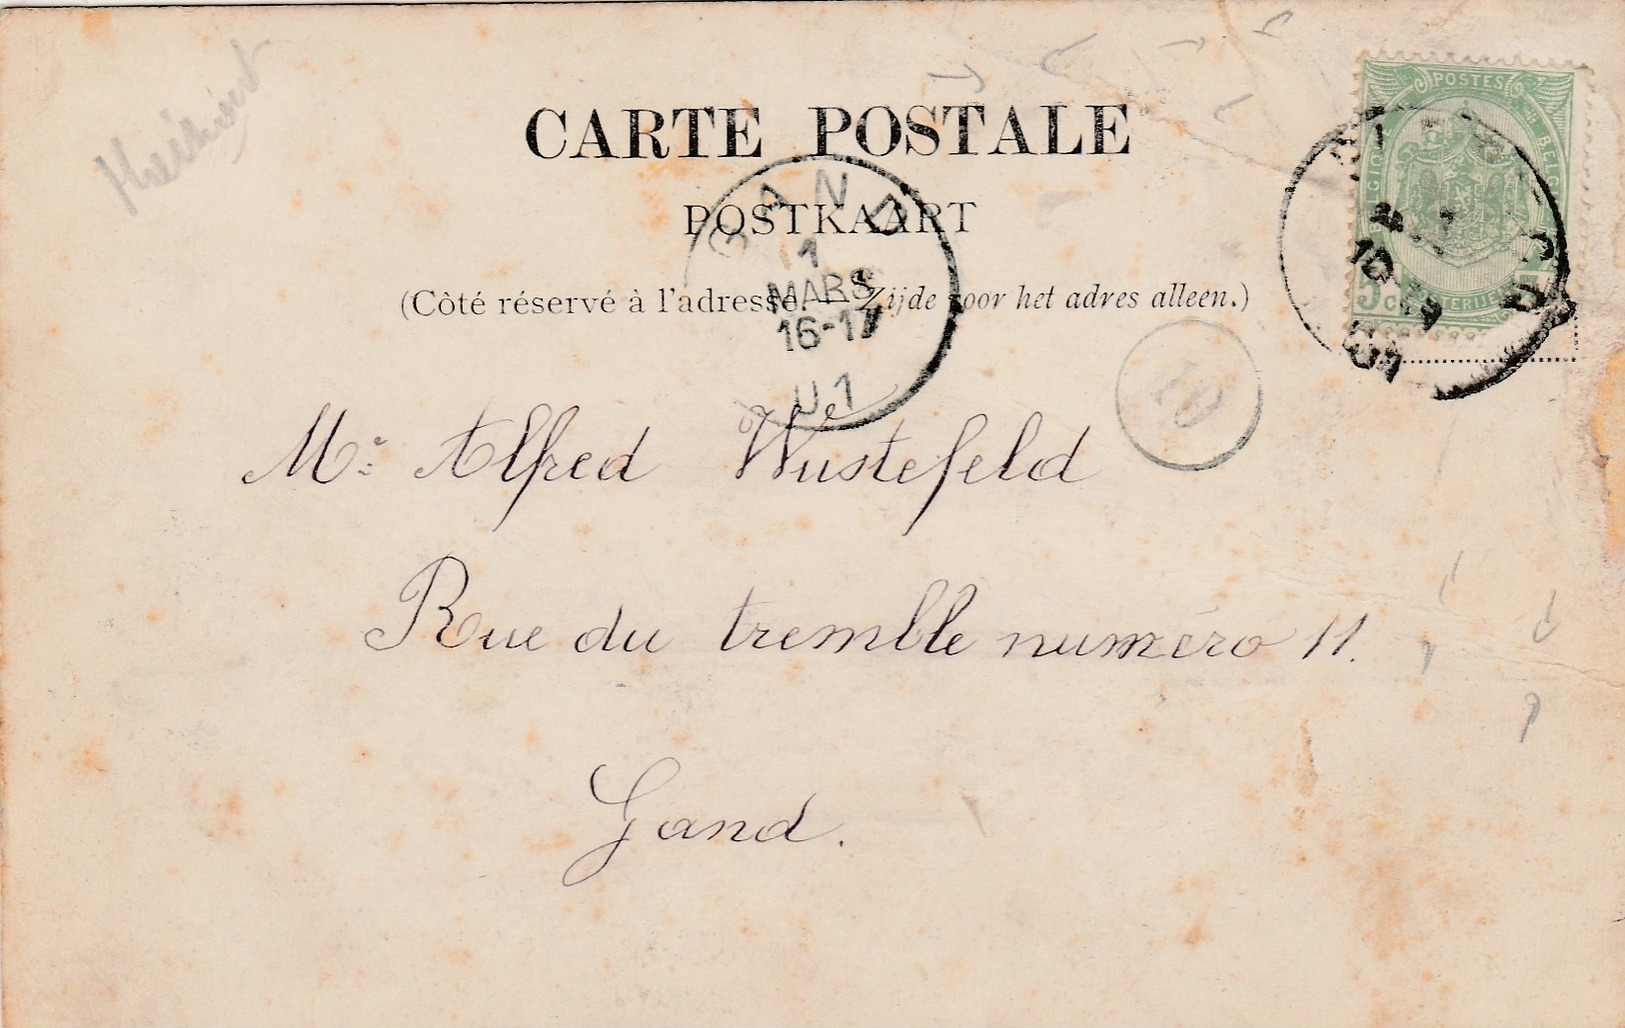 CARTE POSTALE
POSTKAART
(Côté réservé à l'adresse. — Zijde voor het adres alleen.)
GAND
1
MARS
16-17
01
POSTES
BELGIQUE
5 c
10
Mr: Alfred Wustefeld
Rue du tremble numéro 11.
Gand.